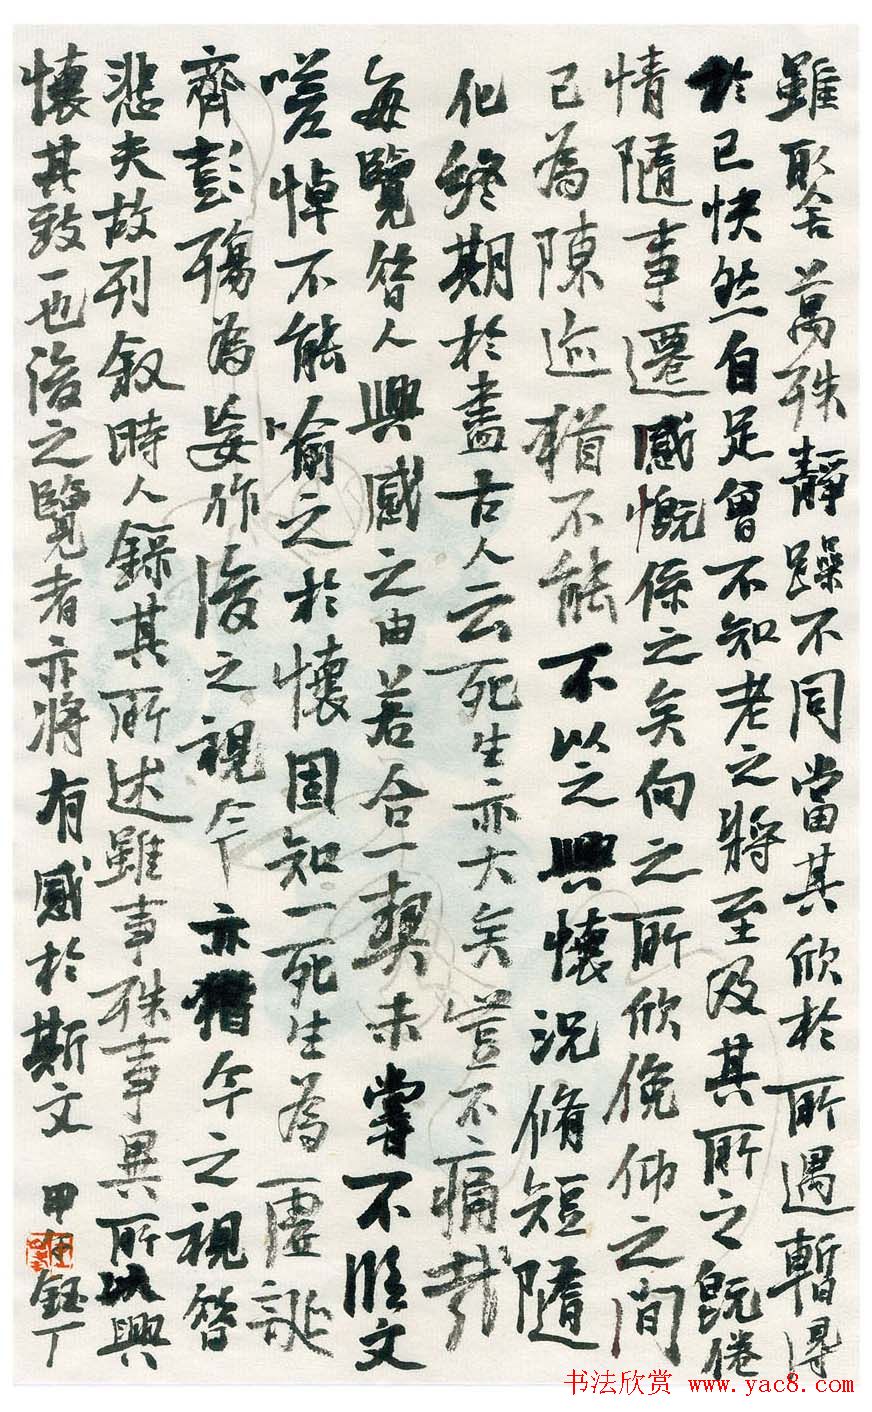 雖取舍萬殊靜躁不同當其欣於所遇暫得
於已快然自足曾不知老之將至及其所之既倦
情隨事遷感慨係之矣向之所欣俛仰之間
已為陳迹猶不能不以之興懷況脩短隨
化終期於盡古人云死生亦大矣豈不痛哉
每覽昔人興感之由若合一契未嘗不臨文
嗟悼不能喻之於懷固知一死生為虛誕
齊彭殤為妄作後之視今亦猶今之視昔
悲夫故列叙時人錄其所述雖事殊事異所以興
懷其致一也後之覽者亦將有感於斯文 甲午鈺丁
书法欣赏 www.yac8.com